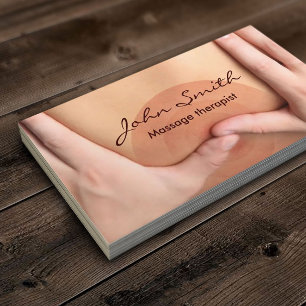 John Smith
Massage therapist